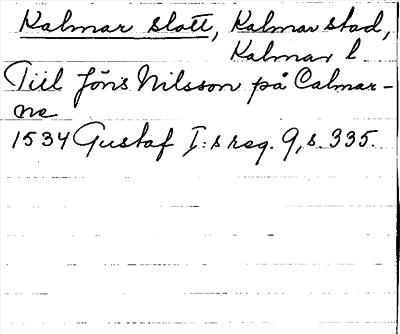 Kalmar slott, Kalmar stad,
Kalmar l
Till Jöns Nilsson på Calmar-
ne
1534 Gustaf I:s reg. 9, s. 335.